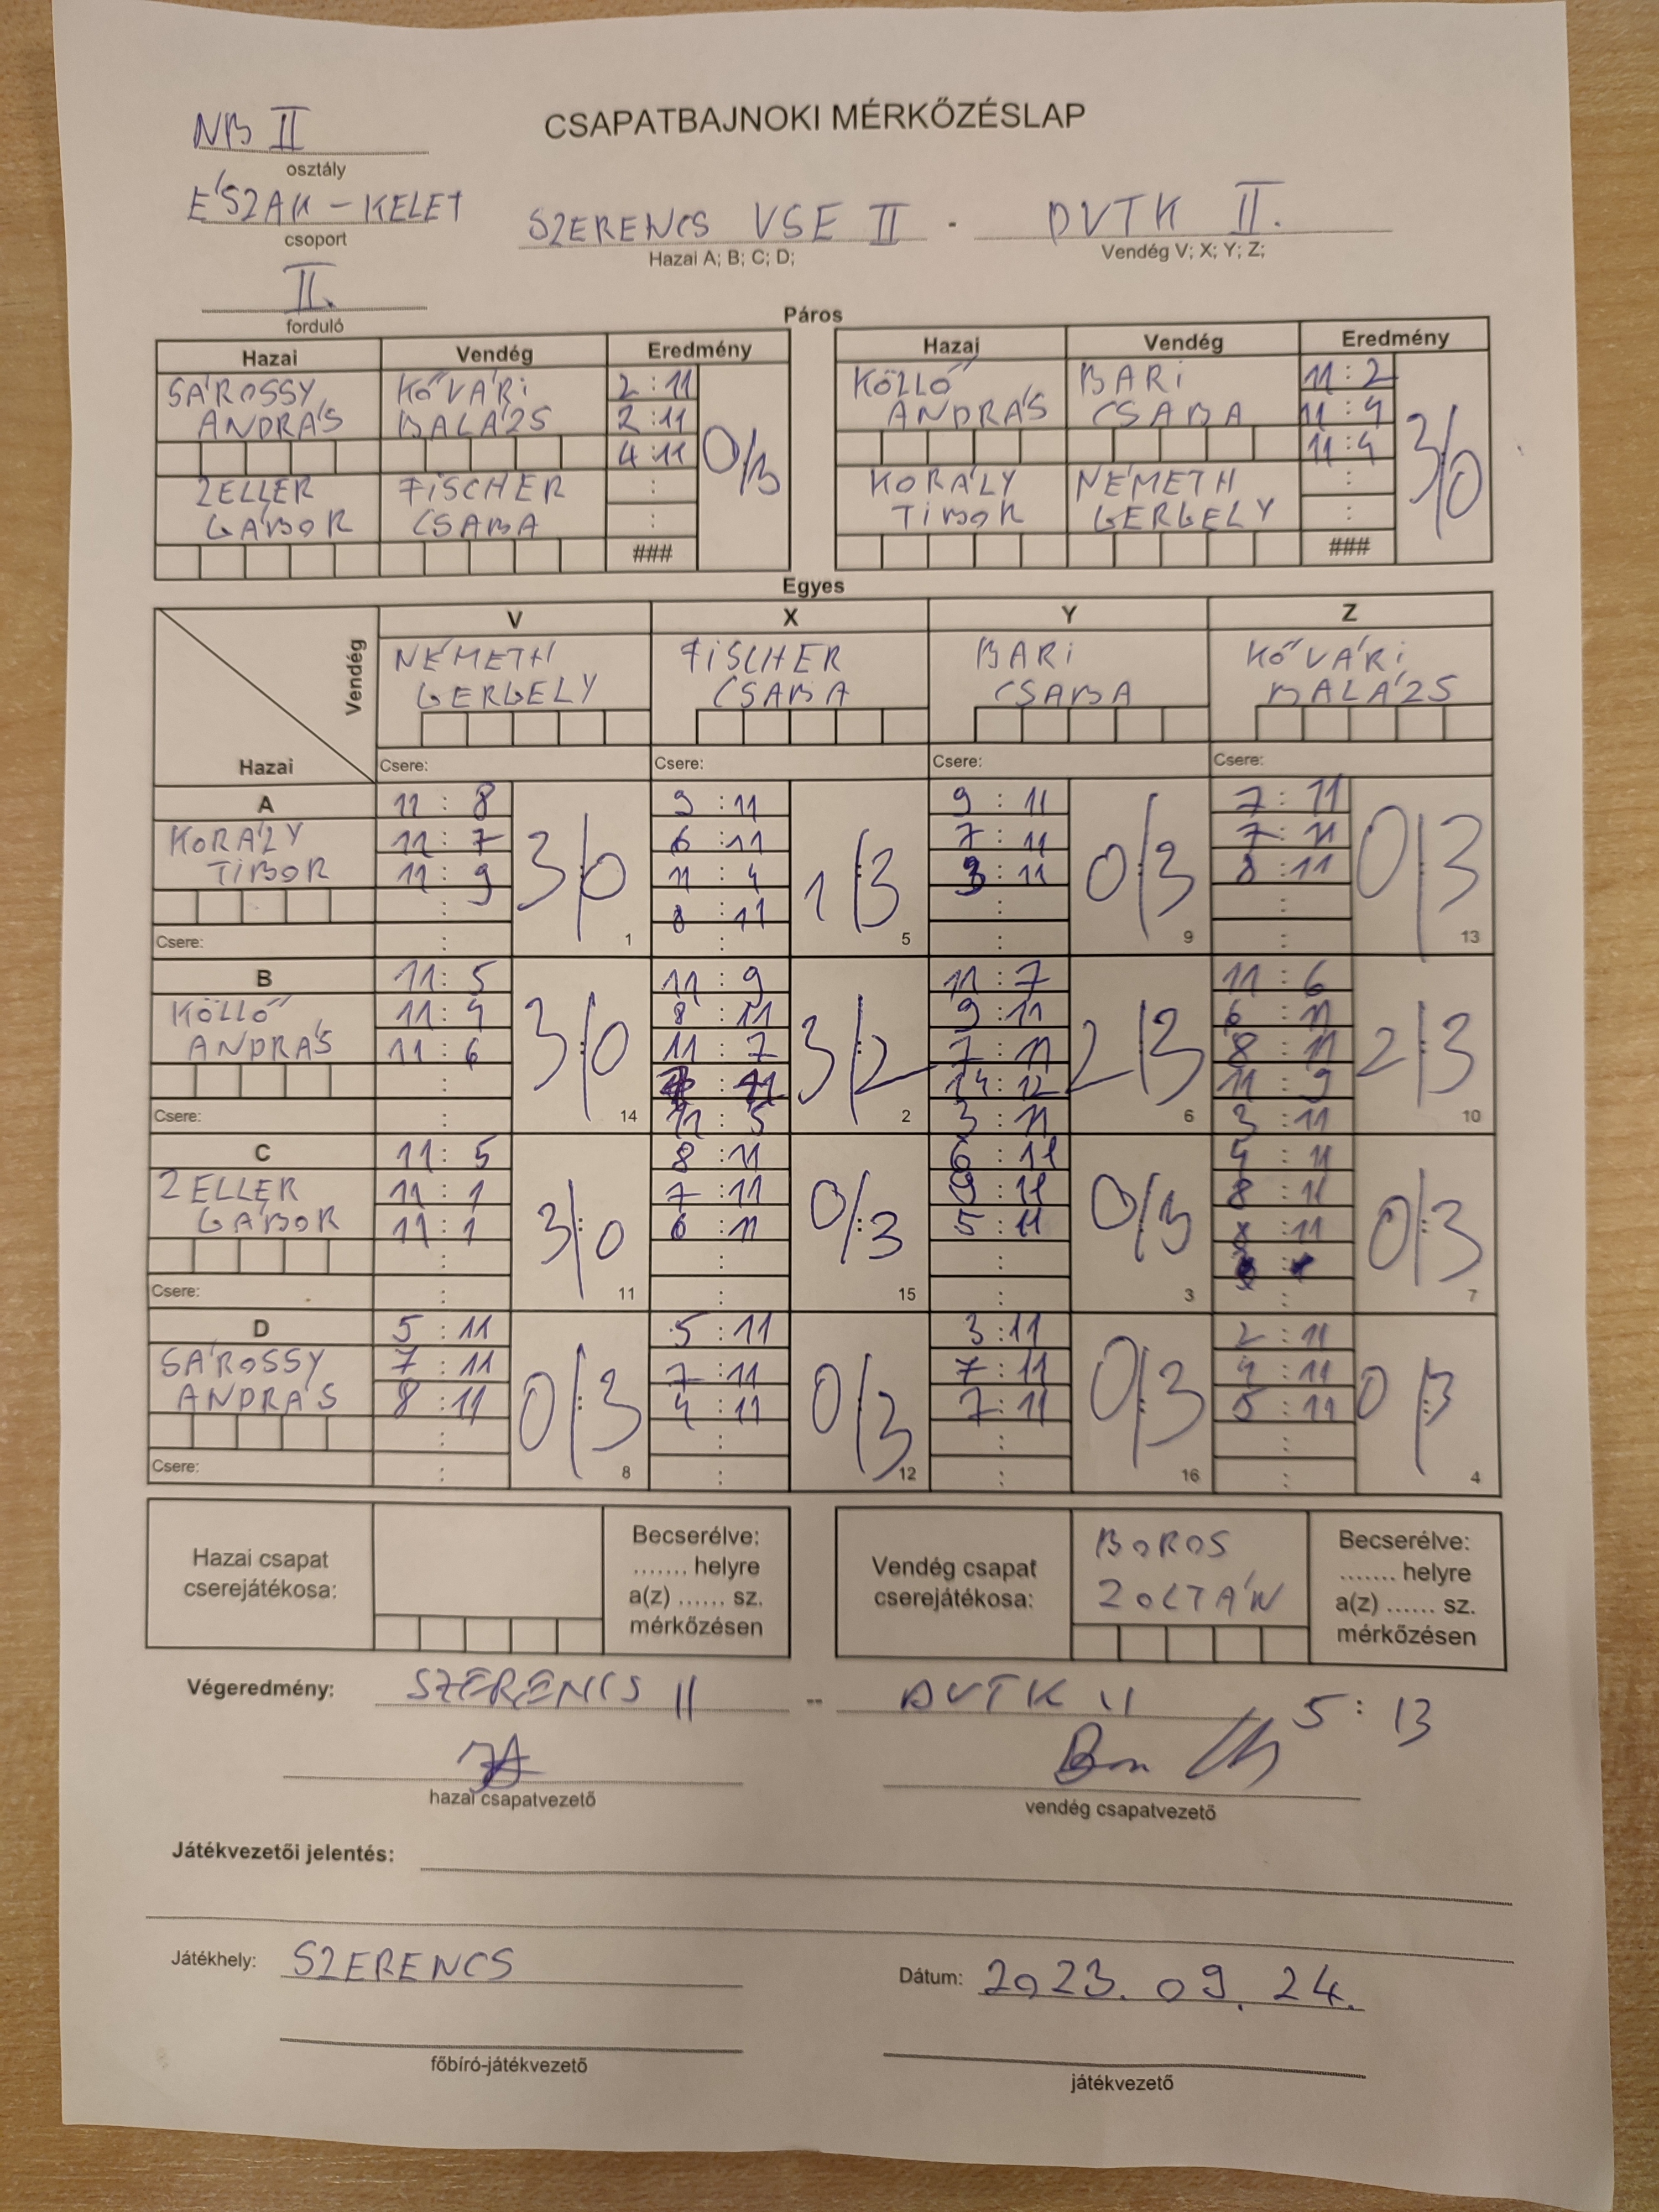 NB II
CSAPATBAJNOKI MÉRKŐZÉSLAP
osztály
ÉSZAK - KELET
csoport
SZERENCS VSE II - DVTK II.
Hazai A; B; C; D;
Vendég V; X; Y; Z;
II.
forduló
Páros
Hazai Vendég Eredmény
SÁROSSY ANDRÁS
KŐVÁRI BALÁZS
2 : 11
2 : 11
4 : 11
0/3
ZELLER GÁBOR
FISCHER CSABA
:
:
###
Hazai Vendég Eredmény
KÖLLŐ ANDRÁS
BARI CSABA
11 : 2
11 : 4
11 : 4
3/0
KORÁLY TIBOR
NÉMETH GERGELY
:
:
###
Egyes
Vendég
Hazai
V X Y Z
NÉMETH GERGELY
FISCHER CSABA
BARI CSABA
KŐVÁRI BALÁZS
Csere: Csere: Csere: Csere:
A
KORÁLY TIBOR
Csere:
11 : 8
11 : 7
11 : 9
:
:
3/0
1
9 : 11
6 : 11
11 : 4
8 : 11
:
1/3
5
9 : 11
7 : 11
3 : 11
:
:
0/3
9
7 : 11
7 : 11
8 : 11
:
:
0/3
13
B
KÖLLŐ ANDRÁS
Csere:
11 : 5
11 : 4
11 : 6
:
:
3/0
14
11 : 9
8 : 11
11 : 7
: 11
11 : 5
3/2
2
11 : 7
9 : 11
7 : 11
14 : 12
3 : 11
2/3
6
11 : 6
6 : 11
8 : 11
11 : 9
3 : 11
2/3
10
C
ZELLER GÁBOR
Csere:
11 : 5
11 : 1
11 : 1
:
:
3/0
11
8 : 11
7 : 11
6 : 11
:
:
0/3
15
6 : 11
9 : 11
5 : 11
:
:
0/3
3
4 : 11
8 : 11
8 : 11
:
:
0/3
7
D
SÁROSSY ANDRÁS
Csere:
5 : 11
7 : 11
8 : 11
:
:
0/3
8
5 : 11
7 : 11
4 : 11
:
:
0/3
12
3 : 11
7 : 11
7 : 11
:
:
0/3
16
2 : 11
4 : 11
5 : 11
:
:
0/3
4
Hazai csapat
cserejátékosa:
Becserélve:
....... helyre
a(z) ...... sz.
mérkőzésen
Vendég csapat
cserejátékosa:
BOROS
ZOLTÁN
Becserélve:
....... helyre
a(z) ...... sz.
mérkőzésen
Végeredmény: SZERENCS II -- DVTK II 5 : 13
hazai csapatvezető
vendég csapatvezető
Játékvezetői jelentés:
Játékhely: SZERENCS
Dátum: 2023. 09. 24.
főbíró-játékvezető
játékvezető